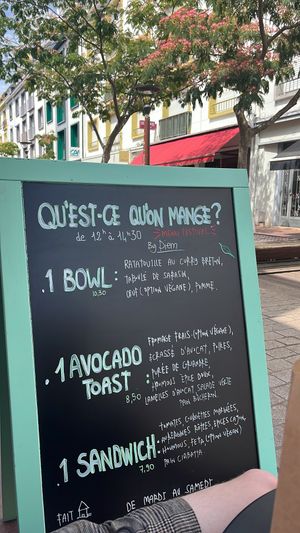 QU'EST-CE QU'ON MANGE?
de 12h à 14h30
MENU FESTIVAL
By Diem
.1 BOWL:
10.30
RATATOUILLE AU CURRY BRETON,
TABOULÉ DE SARASIN,
OEUF (OPTION VÉGANE), POMME.
.1 AVOCADO TOAST:
8,50
FROMAGE FRAIS (OPTION VÉGANE),
ÉCRASÉ D'AVOCAT,
PURÉE DE CORIANDRE,
LAMELLES D'AVOCAT SALADE VERTE
PAIN BÛCHERON
.1 SANDWICH:
7.90
TOMATES, COURGETTES MARINÉES,
AUBERGINES RÔTIES, EPICES CAJUN,
HOUMOUS, FETA (OPTION VÉGAN)
PAIN CIABATTA
FAIT
DE MARDI AU SAMEDI